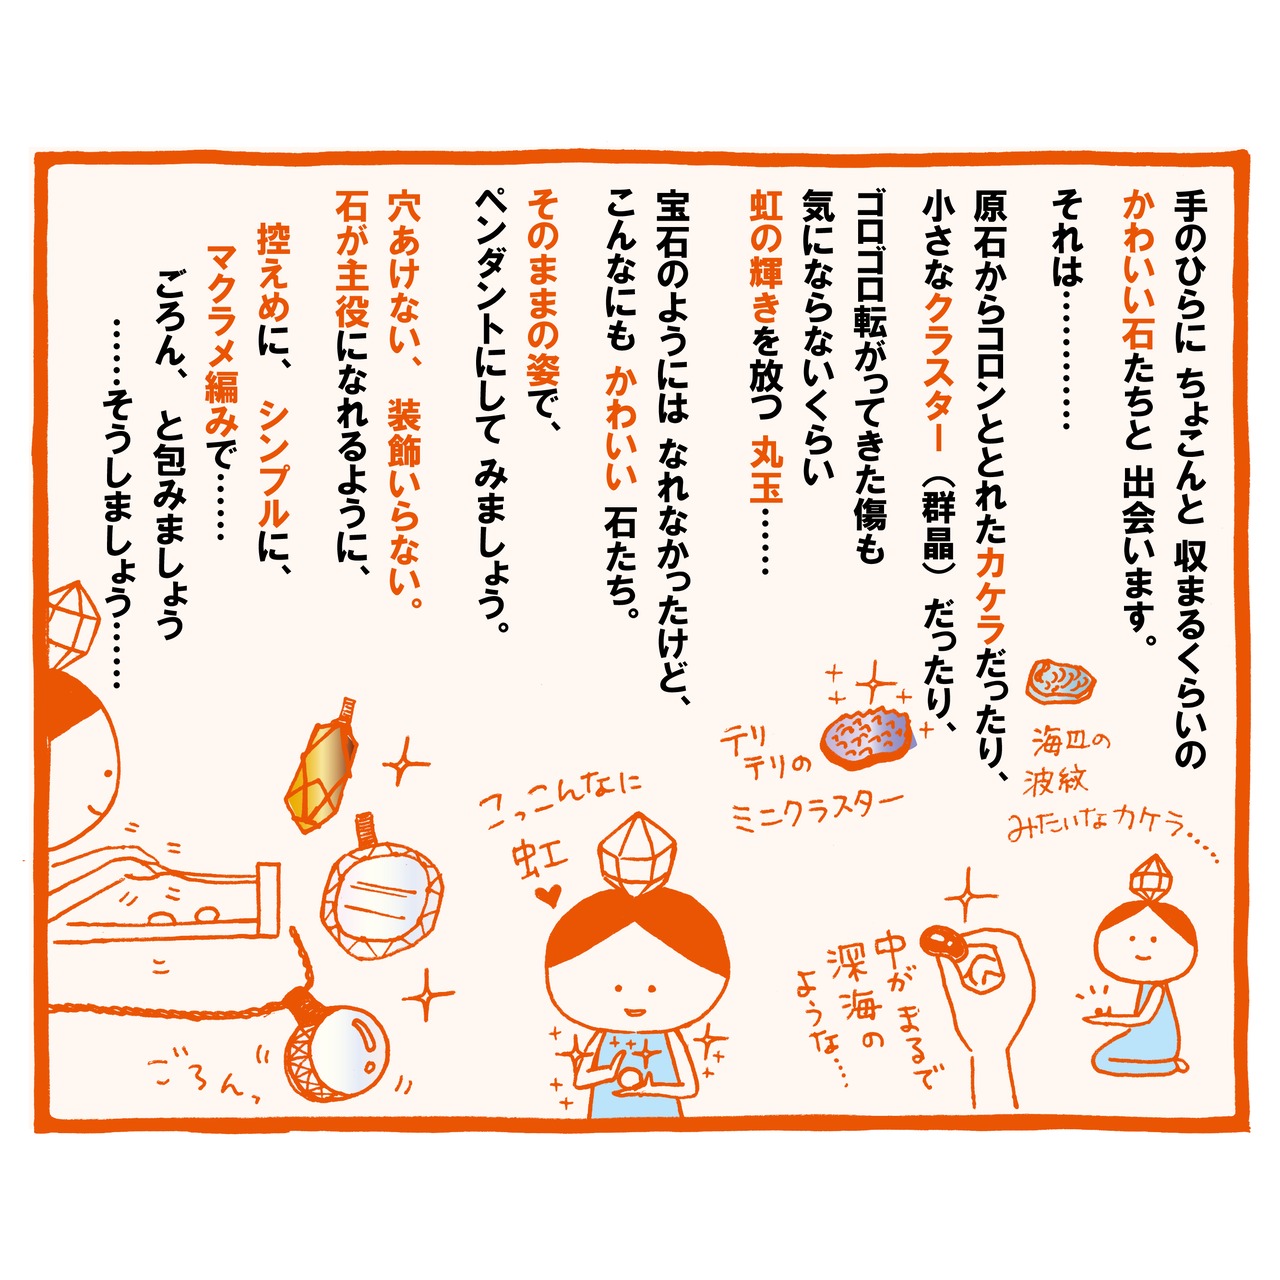 手のひらに ちょこんと 収まるくらいの
かわいい石たちと 出会います。
それは…………
原石からコロンととれたカケラだったり、
小さなクラスター（群晶）だったり、
ゴロゴロ転がってきた傷も
気にならないくらい
虹の輝きを放つ 丸玉……
宝石のようには なれなかったけど、
こんなにも かわいい 石たち。
そのままの姿で、
ペンダントにして みましょう。
穴あけない、 装飾いらない。
石が主役になれるように、
控えめに、 シンプルに、
マクラメ編みで……
ごろん、 と包みましょう
……そうしましょう……
海辺の
波紋
みたいなカケラ……
テリ
テリの
ミニクラスター
中が まるで
深海の
ような…
こっこんなに
虹
ごろん。